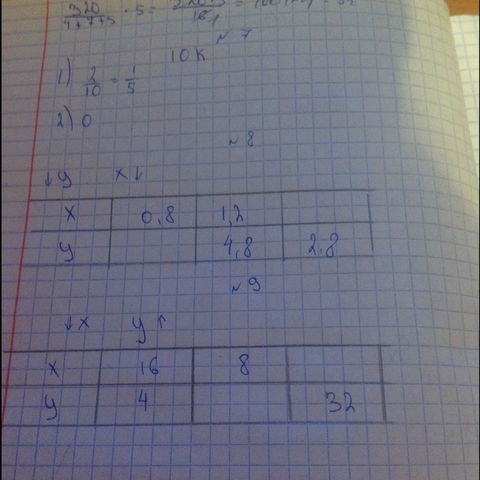 № 7
10 К
1) 2/10 = 1/5
2) 0
№ 8
↓ y x ↓
x 0,8 1,2
y 4,8 2,8
№ 9
↓ x y ↑
x 16 8
y 4 32